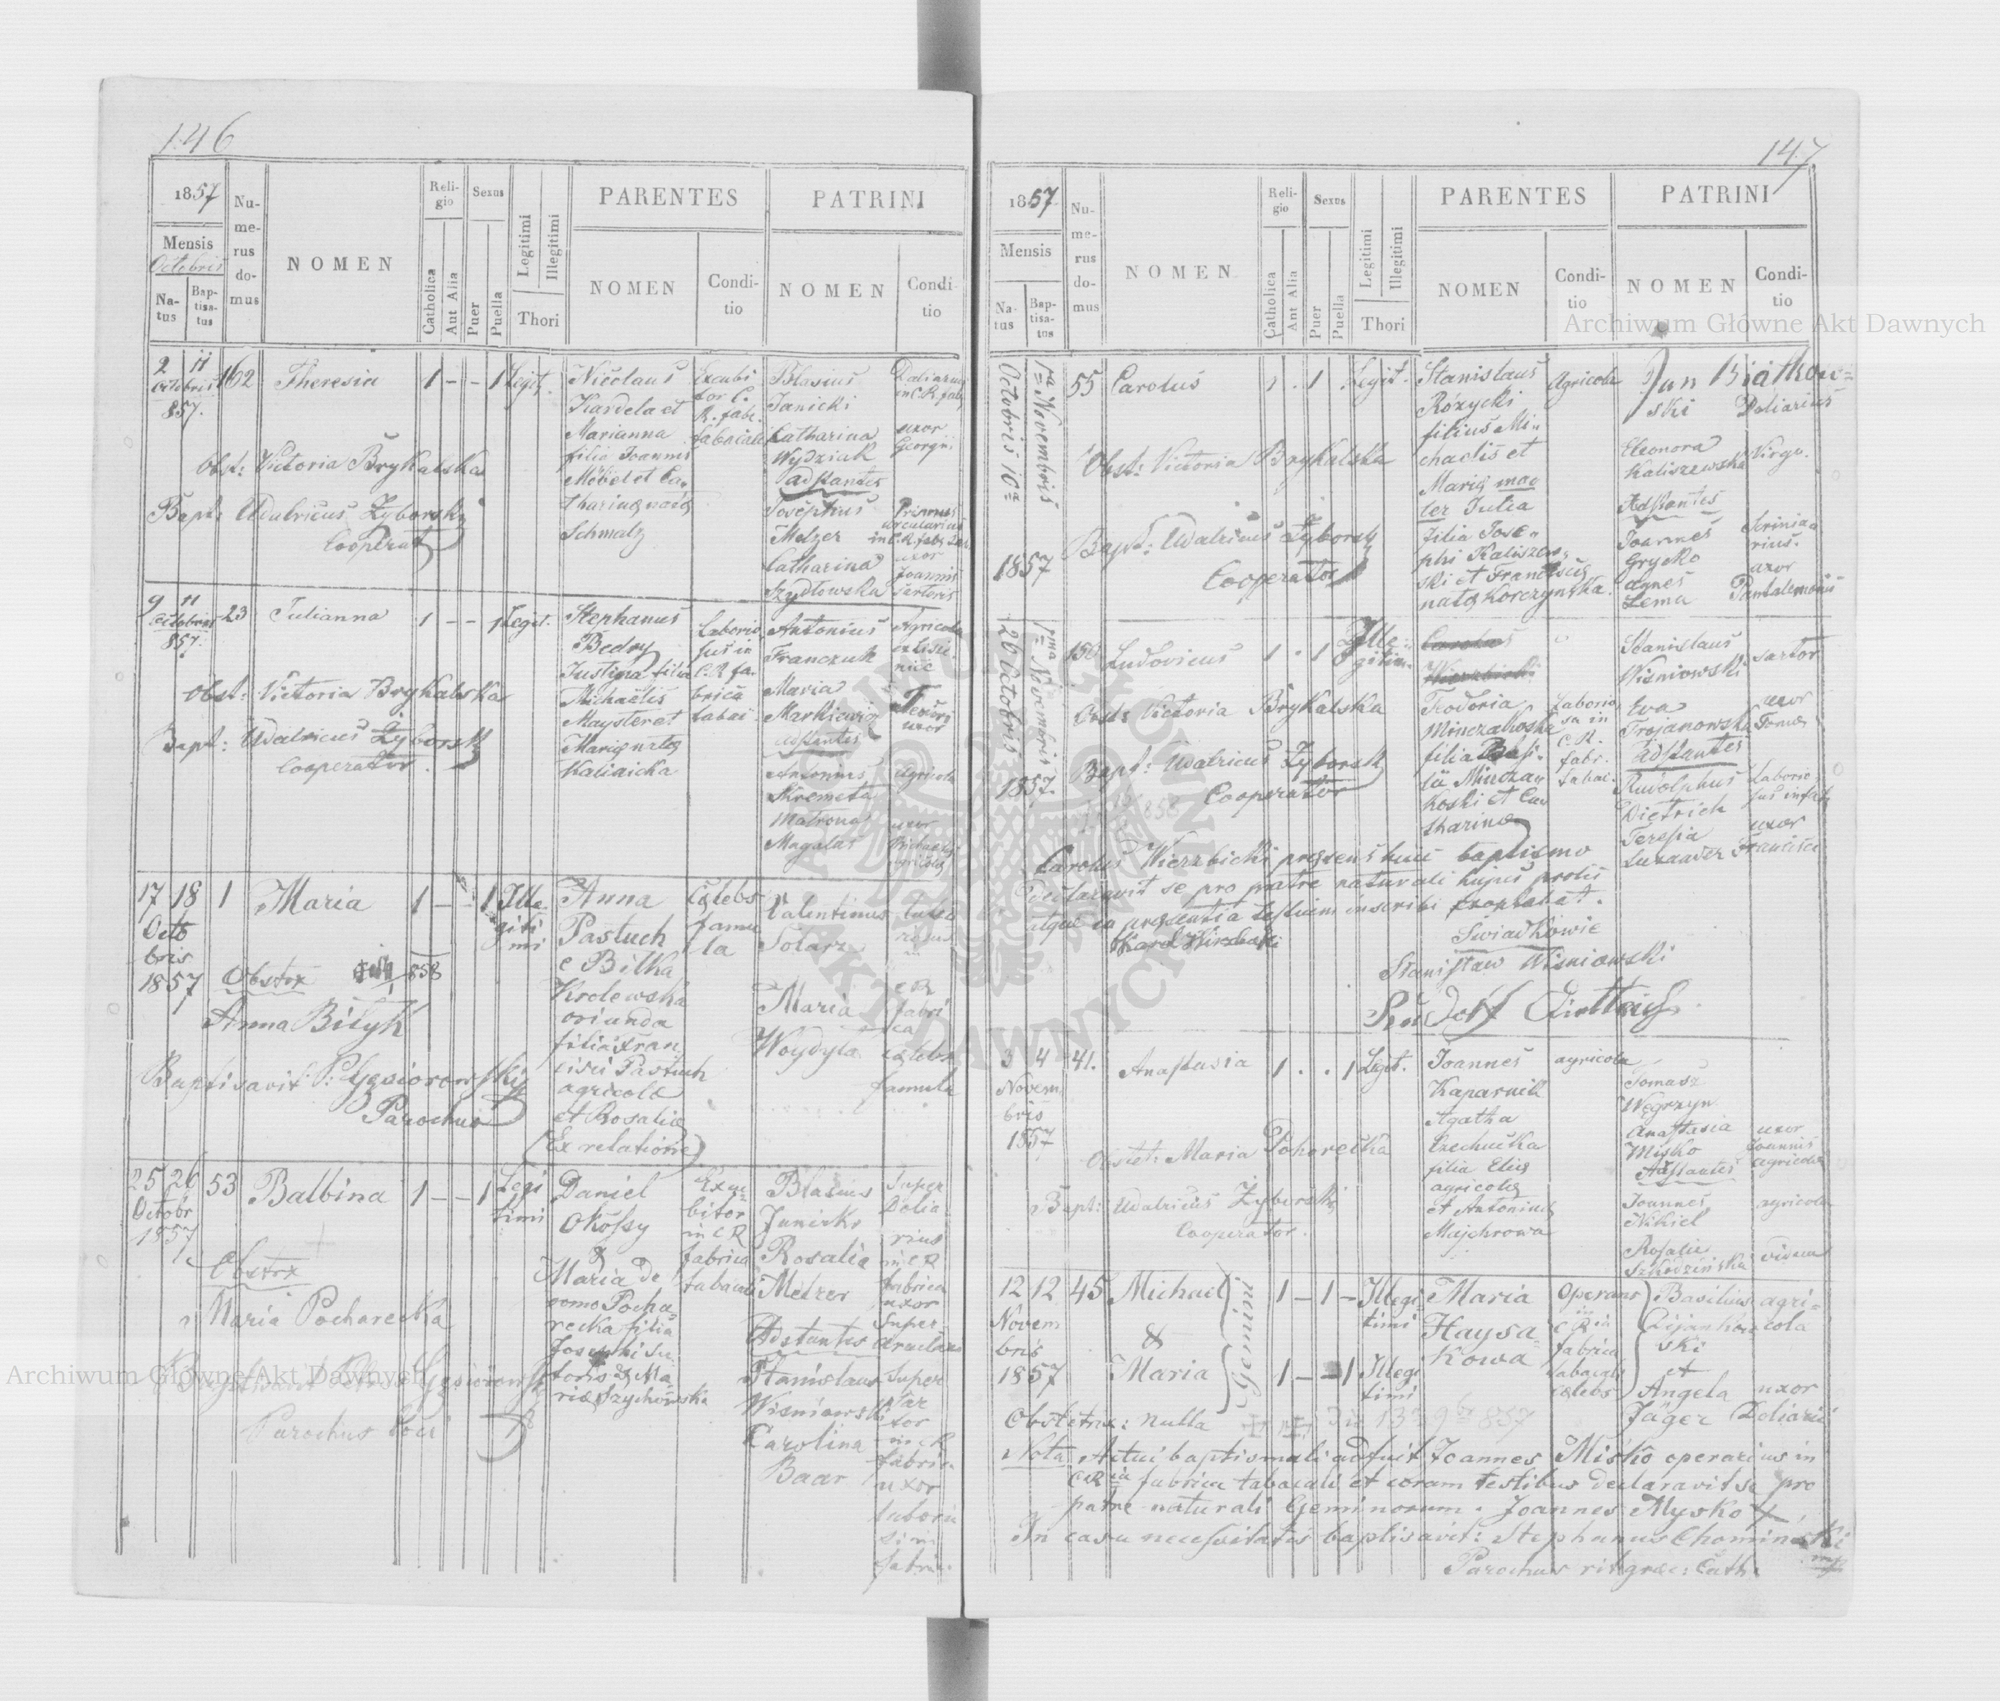 146
1857
Mensis
Octobris
Na-
tus
Bap-
tisa-
tus
Nu-
me-
rus
do-
mus
NOMEN
Reli-
gio
Catholica
Aut Alia
Sexus
Puer
Puella
Legitimi
Illegitimi
Thori
PARENTES
NOMEN
Condi-
tio
PATRINI
NOMEN
Condi-
tio
2 11
Octobris
857.
162
Theresia
1 - - 1
Legit.
Nicolaus
Kardela et
Marianna
filia Joannis
Möbel et Ca-
tharinæ natæ
Schmalz
Excubi
tor C.
R. fabr.
tabacali
Blasius
Janicki
Catharina
Wydziak
Adstantes
Josephus
Melzer
Catharina
Szydłowska
Doliarius
in C.R. fabr.
uxor
Georgii
Primus
in C.R. fabr.
uxor
Joannis
Sartoris
Obst: Victoria Brykalska
Bapt: Udalricus Zyborski
Cooperat
9 11
Octobris
857.
23
Julianna
1 - - 1
Legit.
Stephanus
Bedry
Justyna filia
Michaelis
Mayster et
Mariæ natæ
Kaliaicka
Laborio
sus in
C.R. fa-
brica
tabac.
Antonius
Franczuk
Maria
Markiewicz
Adstantes
Antonius
Kremeta
Matrona
Magalas
Agricola
uxor
Agricola
uxor
Obst: Victoria Brykalska
Bapt: Udalricus Zyborski
Cooperator
17 18
Octo
bris
1857
1
Maria
1 - - 1
Ille-
giti
mi
Anna
Pastuch
e Bilka
Krolewska
oriunda
filia Fran
cisci Pastuch
agricolæ
et Rosaliæ
(Ex relatione)
Cælebs
famu
la
Valentinus
Solarz
Maria
Woydyla
in
CR
fabri
ca
cælebs
famula
Obstrx
858
Anna Bilyk
Baptisavit P. Gąsiorowski
Parochus
25 26
Octobr
1857
53
Balbina
1 - - 1
Legi
timi
Daniel
Okossy
&
Maria de
domo Pocha
recka filia
Josephi Su-
toris & Ma
riæ Szychowska
Excu
bitor
in CR
fabrica
tabacali
Blasius
Janicki
Rosalia
Melzer
Adstantes
Stanislaus
Wisniowski
Carolina
Baar
Super
Dolia
rius
in CR
fabrica
uxor
Super
Super
Sar
tor
in CR
fabrica
uxor
laborio
si in
fabrica
Obstrx
Maria Pocharecka
Baptisavit Petrus Gąsiorowski
Parochus loci
147
1857
Mensis
Na-
tus
Bap-
tisa-
tus
Nu-
me-
rus
do-
mus
NOMEN
Reli-
gio
Catholica
Aut Alia
Sexus
Puer
Puella
Legitimi
Illegitimi
Thori
PARENTES
NOMEN
Condi-
tio
PATRINI
NOMEN
Condi-
tio
Octobris 10ª
1ª Novembris
1857
55
Carolus
1 . 1
Legit.
Stanislaus
Rózycki
filius Mi-
chaelis et
Mariæ ma-
ter Julia
filia Jose-
phi Kaliszew-
ski et Franciscæ
natæ Korczynska
Agricola
Jan Białkow-
ski
Doliarius
Eleonora
Kaliszewska
Virgo.
Adstantes
Joannes
Grycko
Agnes
Lema
Scrinia-
rius.
uxor
Pantalemonis
Obst: Victoria Brykalska
Bapt: Udalricus Zyborski
Cooperator
26 Octobris
1ma Novembris
1857.
150
Ludovicus
1 . 1
Ille-
gitim.
Carolus
Wierzbicki
Teodoria
Minczakoska
filia Basi-
lii Mincza-
koski et Ca-
tharinæ
Laborio
sa in
C.R.
fabr.
tabac.
Stanislaus
Wisniowski
Eva
Trojanowska
Adstantes
Rudolphus
Dietrich
Teresia
Sartor
uxor
Laborio
sus in fab
uxor
Francisci
Obst: Victoria Brykalska
Bapt: Udalricus Zyborski
Cooperator
858
Carolus Wierzbicki præsens huic baptismo
declaravit se pro patre naturali hujus prolis
atque in præsentia testium inscribi
Karol Wirzbicki
Swiadkowie
Stanisław Wisniowski
Rudolf Dietrich
3 4
Novem
bris
1857
41.
Anastasia
1 . . 1
Legit.
Joannes
Kaparnik
Agatha
Czechucka
filia Eliæ
agricolæ
et Antoninæ
Majchrowa
agricola
Tomasz
Węgrzyn
Anastasia
Misko
Adstantes
Joannes
Nikiel
Rosalie
Szkodzinska
uxor
Joannis
agricolæ
agricola
vidua
Obstet: Maria Pohorecka
Bapt: Udalricus Zyborski
Cooperator.
12 12
Novem
bris
1857
45
Michael
&
Maria
Gemini
1 - 1 -
1 - - 1
Illegi-
timi
Illegi
timi
Maria
Haysa-
kowa
Operans
in
CR
fabrica
tabacali
cælebs
Basilius
ski
et
Angela
Jäger
agri-
cola
uxor
Doliarii
Obstetrix: nulla
13 9br 857
Nota Actui baptismali adfuit Joannes Misko operarius in
CR fabrica tabacali et coram testibus declaravit se pro
patre naturali Geminorum. Joannes Mysko +,
In casu necessitatis baptisavit: Stephanus Chominski
Parochus rit græc: Cath.
Archiwum Główne Akt Dawnych
Archiwum Główne Akt Dawnych
ARCHIWUM GŁÓWNE AKT DAWNYCH